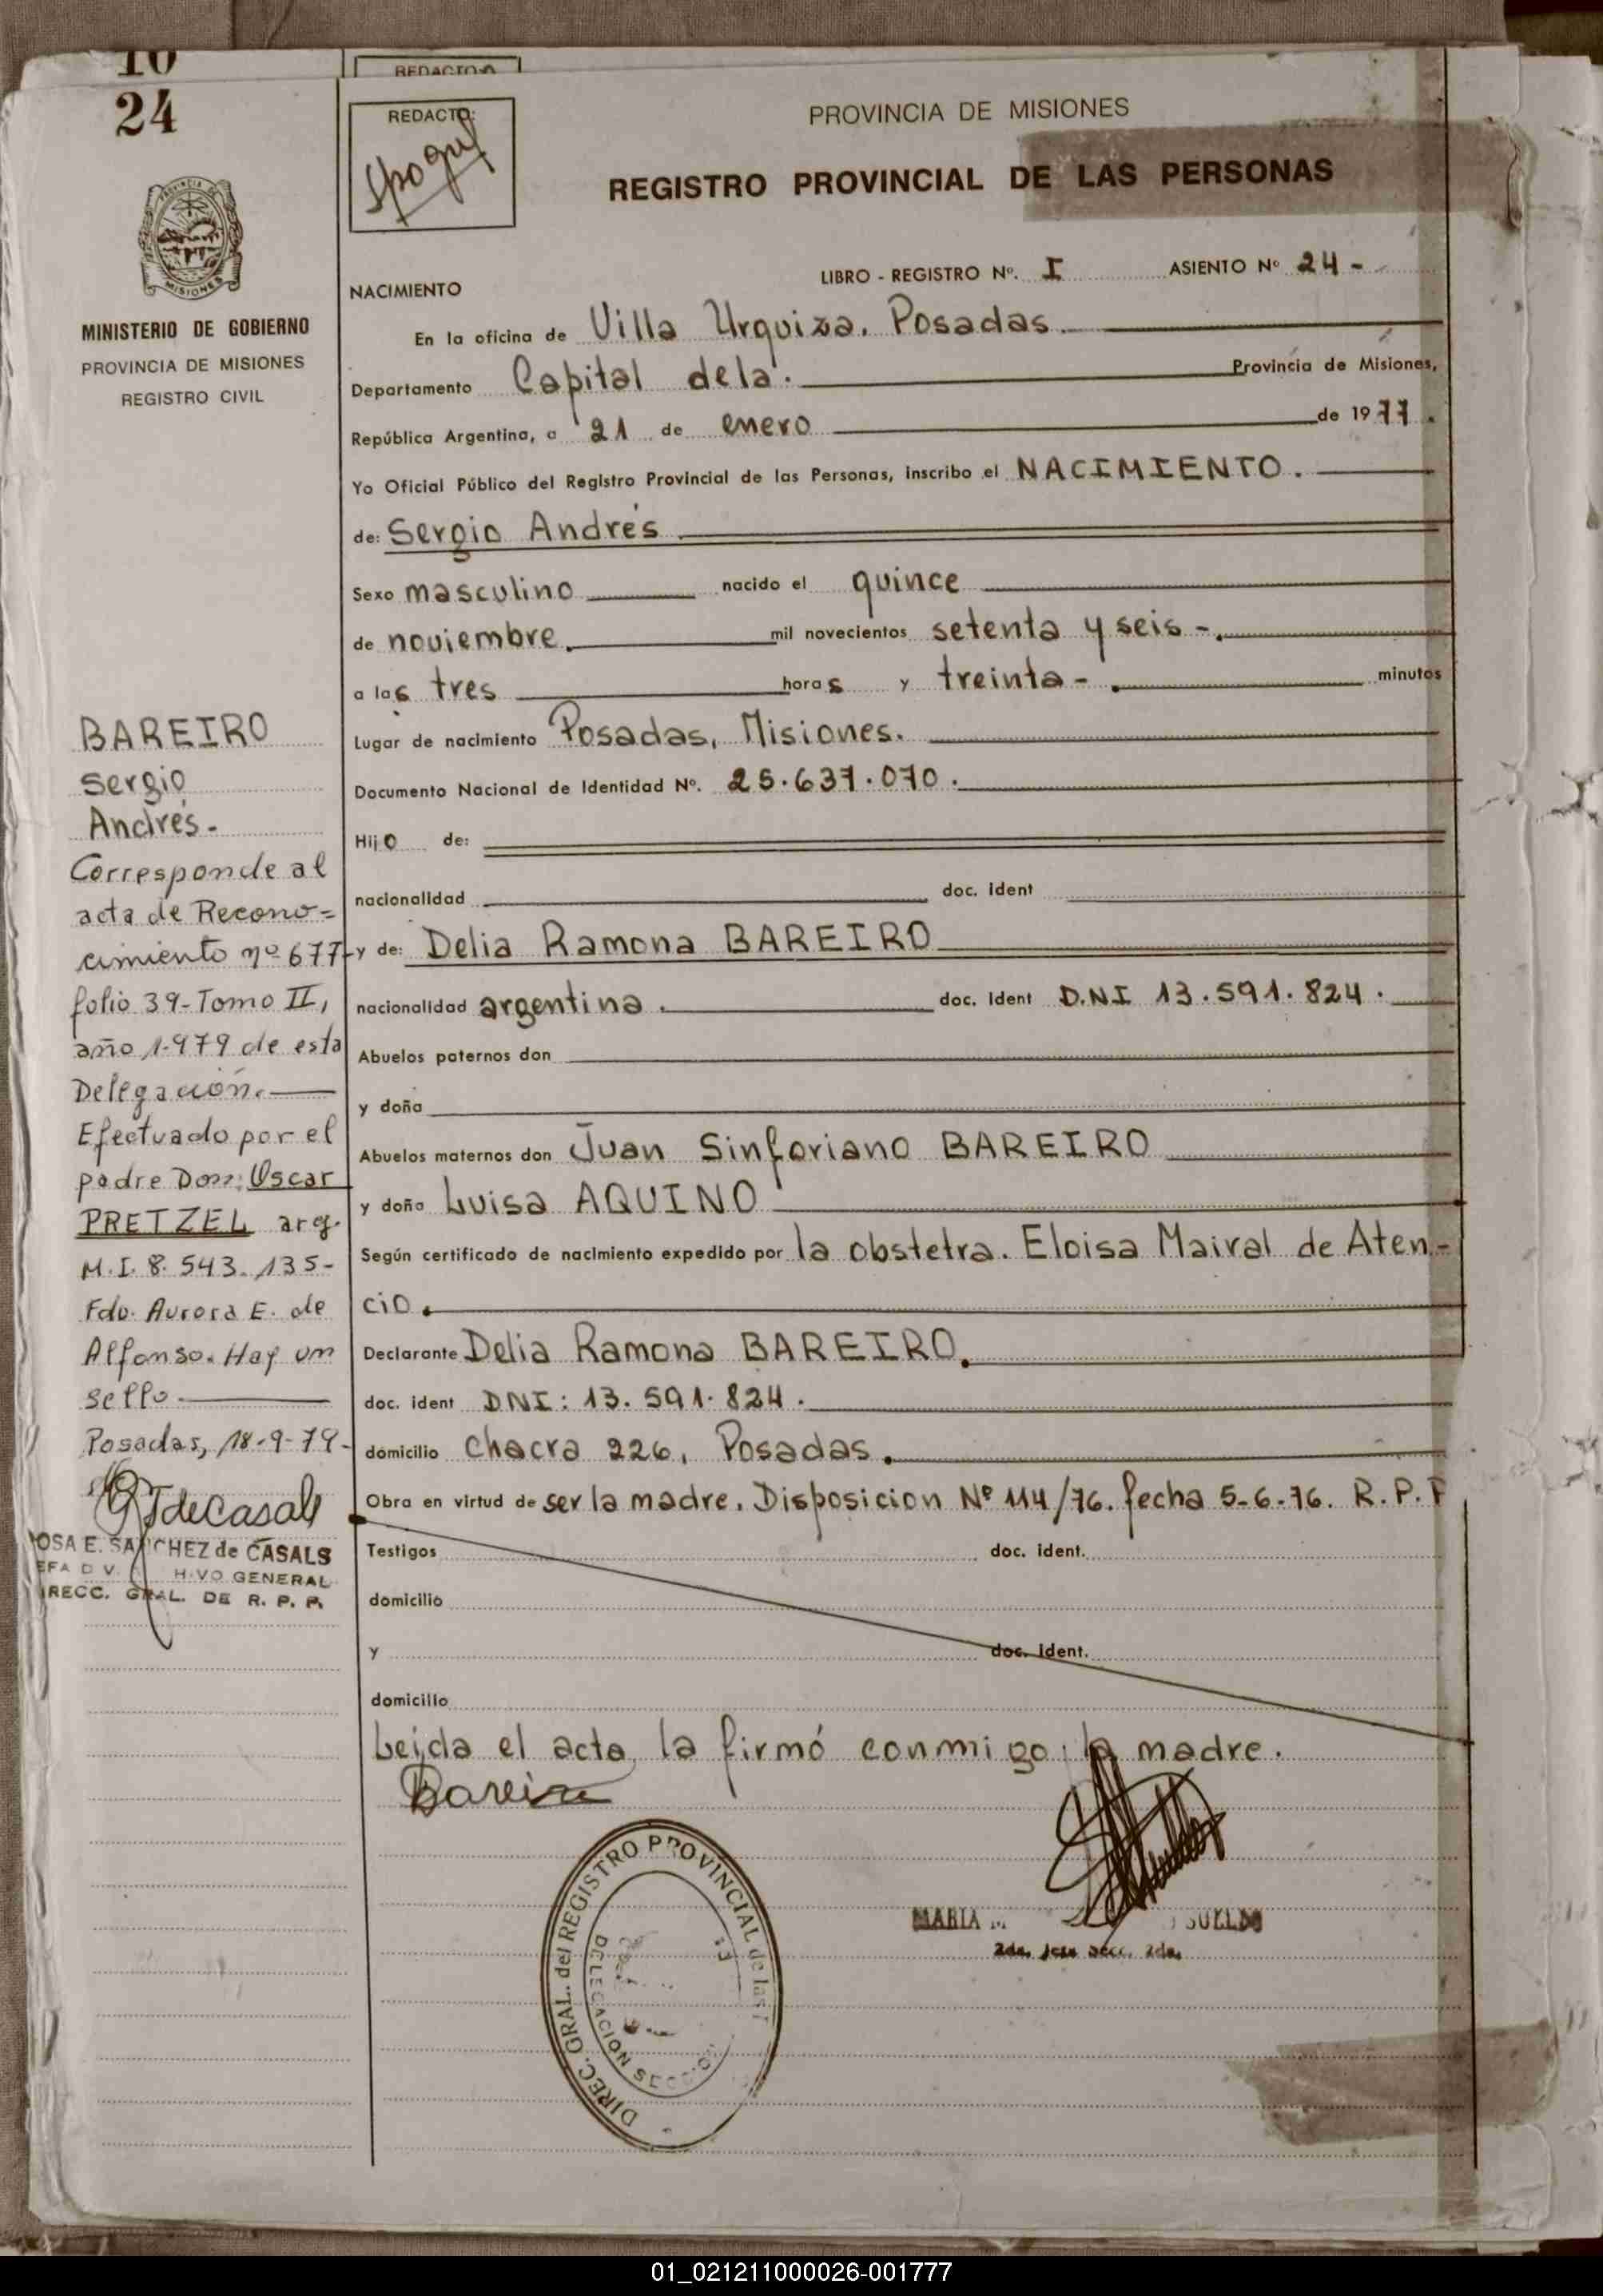 10
REDACTO
24
REDACTO:
PROVINCIA DE MISIONES
REGISTRO PROVINCIAL DE LAS PERSONAS
PROVINCIA DE
MISIONES
MINISTERIO DE GOBIERNO
PROVINCIA DE MISIONES
REGISTRO CIVIL
LIBRO - REGISTRO Nº. I ASIENTO Nº 24 -
NACIMIENTO
En la oficina de Villa Urquiza. Posadas.
Departamento Capital de la. Provincia de Misiones,
República Argentina, a 21 de enero de 1977.
Yo Oficial Público del Registro Provincial de las Personas, inscribo el NACIMIENTO.
de: Sergio Andrés
Sexo masculino nacido el quince
de noviembre. mil novecientos setenta y seis -.
a las tres horas y treinta - . minutos
Lugar de nacimiento Posadas, Misiones.
Documento Nacional de Identidad Nº. 25.637.070.
Hijo de:
nacionalidad doc. ident
y de: Delia Ramona BAREIRO
nacionalidad argentina. doc. ident D.N.I 13.591.824.
Abuelos paternos don
y doña
Abuelos maternos don Juan Sinforiano BAREIRO
y doña Luisa AQUINO
Según certificado de nacimiento expedido por la obstetra. Eloisa Mairal de Aten-
cio.
Declarante Delia Ramona BAREIRO.
doc. ident DNI: 13.591.824.
domicilio chacra 226, Posadas.
Obra en virtud de ser la madre. Disposicion Nº 114/76. fecha 5-6-76. R.P.P
Testigos doc. ident.
domicilio
y doc. ident.
domicilio
Leída el acta, la firmó conmigo, la madre.
Bareiro
BAREIRO
Sergio
Andrés.
Corresponde al
acta de Recono=
cimiento nº 677-
folio 39-Tomo II,
año 1.979 de esta
Delegación.
Efectuado por el
padre Don: Oscar
PRETZEL arg.
M.I. 8.543.135-
Fdo. Aurora E. de
Alfonso. Hay un
sello.
Posadas, 18-9-79-
deCasals
OSA E. SANCHEZ de CASALS
EFA DIV. HIVO GENERAL
IRECC. GRAL. DE R. P. P.
DIREC. GRAL. del REGISTRO PROVINCIAL de las
DELEGACION SECCION
MARIA M. SUELDO
2da. Jefe Secc. 2da.
01_021211000026-001777